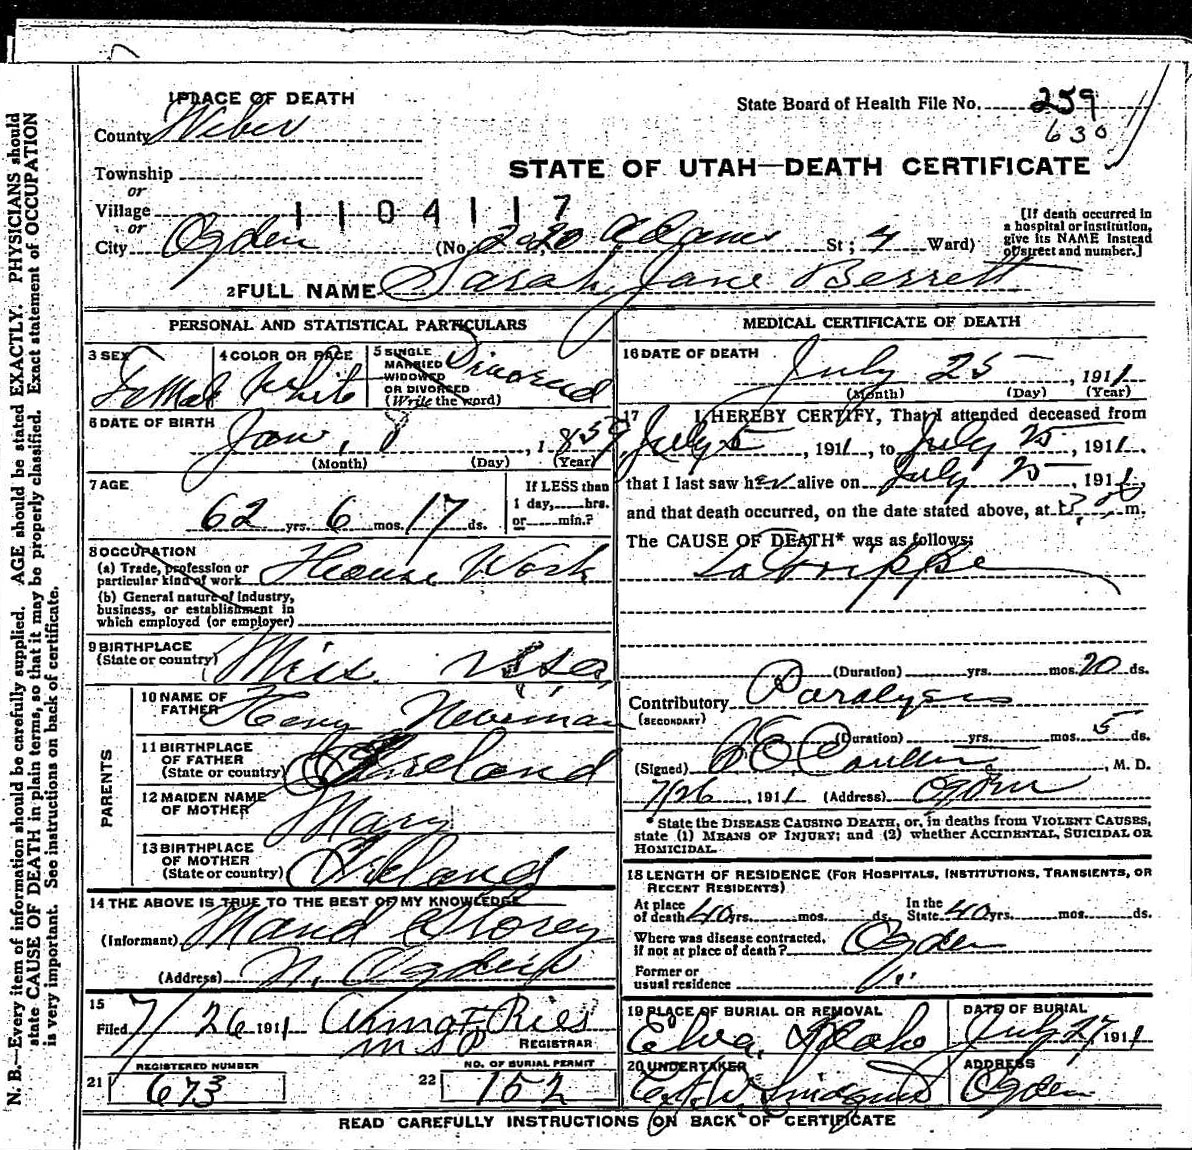 1 PLACE OF DEATH
State Board of Health File No. 259
630
County Weber
STATE OF UTAH—DEATH CERTIFICATE
Township
or
Village
or
1104117
City Ogden (No. 2220 Adams St; 4 Ward)
[If death occurred in a hospital or institution, give its NAME instead of street and number.]
2 FULL NAME Sarah Jane Berrett
PERSONAL AND STATISTICAL PARTICULARS
3 SEX Female
4 COLOR OR RACE White
5 SINGLE MARRIED WIDOWED OR DIVORCED (Write the word) Divorced
6 DATE OF BIRTH Jan, 8, 1859
(Month) (Day) (Year)
7 AGE
62 yrs. 6 mos. 17 ds.
If LESS than 1 day, hrs. or min.?
8 OCCUPATION
(a) Trade, profession or particular kind of work House Work
(b) General nature of industry, business, or establishment in which employed (or employer)
9 BIRTHPLACE
(State or country) Miss.
PARENTS
10 NAME OF FATHER Henry Newman
11 BIRTHPLACE OF FATHER
(State or country) Ireland
12 MAIDEN NAME OF MOTHER Mary
13 BIRTHPLACE OF MOTHER
(State or country) Ireland
14 THE ABOVE IS TRUE TO THE BEST OF MY KNOWLEDGE
(Informant) Maud Storey
(Address) N. Ogden
15
Filed 7/26 1911 REGISTRAR
REGISTERED NUMBER
21 673
NO. OF BURIAL PERMIT
22 152
MEDICAL CERTIFICATE OF DEATH
16 DATE OF DEATH
July 25, 1911
(Month) (Day) (Year)
17 I HEREBY CERTIFY, That I attended deceased from
July 5, 1911, to July 25, 1911,
that I last saw her alive on July 25, 1911,
and that death occurred, on the date stated above, at m.
The CAUSE OF DEATH* was as follows:
La Grippe
(Duration) yrs. mos. 20 ds.
Contributory Paralysis
(SECONDARY)
(Duration) yrs. mos. 5 ds.
(Signed) M. D.
7/26, 1911 (Address) Ogden
* State the DISEASE CAUSING DEATH, or, in deaths from VIOLENT CAUSES, state (1) MEANS OF INJURY; and (2) whether ACCIDENTAL, SUICIDAL OR HOMICIDAL.
18 LENGTH OF RESIDENCE (FOR HOSPITALS, INSTITUTIONS, TRANSIENTS, OR RECENT RESIDENTS)
At place of death 40 yrs. mos. ds. In the State 40 yrs. mos. ds.
Where was disease contracted, if not at place of death? Ogden
Former or usual residence
19 PLACE OF BURIAL OR REMOVAL
Elva, Idaho
DATE OF BURIAL
July 27, 1911
20 UNDERTAKER
Lindquist
ADDRESS
Ogden
READ CAREFULLY INSTRUCTIONS ON BACK OF CERTIFICATE
N. B.—Every item of information should be carefully supplied. AGE should be stated EXACTLY. PHYSICIANS should
state CAUSE OF DEATH in plain terms, so that it may be properly classified. Exact statement of OCCUPATION
is very important. See instructions on back of certificate.